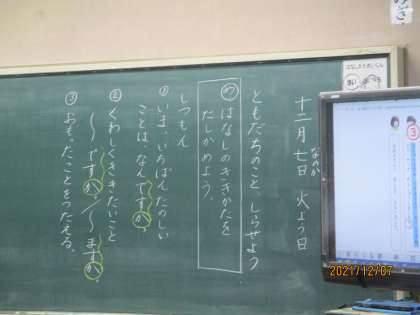 十二月七日 火よう日
なのか
ともだちのこと、しらせよう
め はなしのききかたを
たしかめよう。
しつもん
① いま、いちばんたのしい
ことは、なんですか。
② くわしくききたいこと
〜ですか。/〜ますか。
③ おもったことをつたえる。
③
2021/12/07